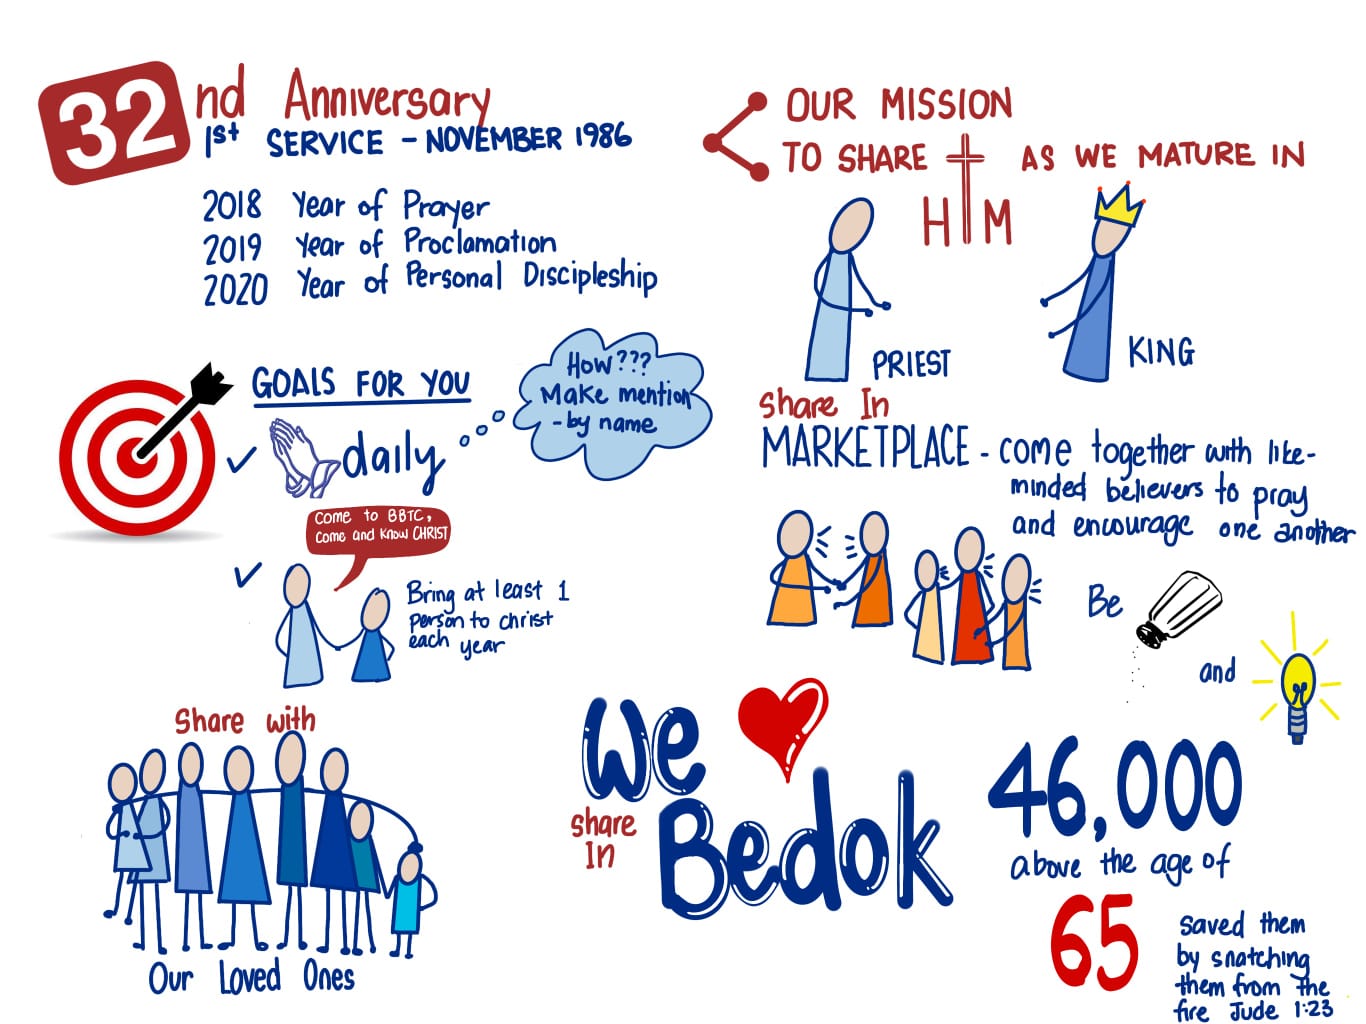 32nd Anniversary
1st SERVICE - NOVEMBER 1986
2018 Year of Prayer
2019 Year of Proclamation
2020 Year of Personal Discipleship
GOALS FOR YOU
daily
How???
Make mention
- by name
Come to BBTC,
Come and Know CHRIST
Bring at least 1
person to christ
each year
Share with
Our Loved Ones
OUR MISSION
TO SHARE AS WE MATURE IN
HIM
PRIEST
KING
Share In
MARKETPLACE - come together with like-
minded believers to pray
and encourage one another
Be
and
We
share
In
Bedok
46,000
above the age of
65
saved them
by snatching
them from the
fire Jude 1:23